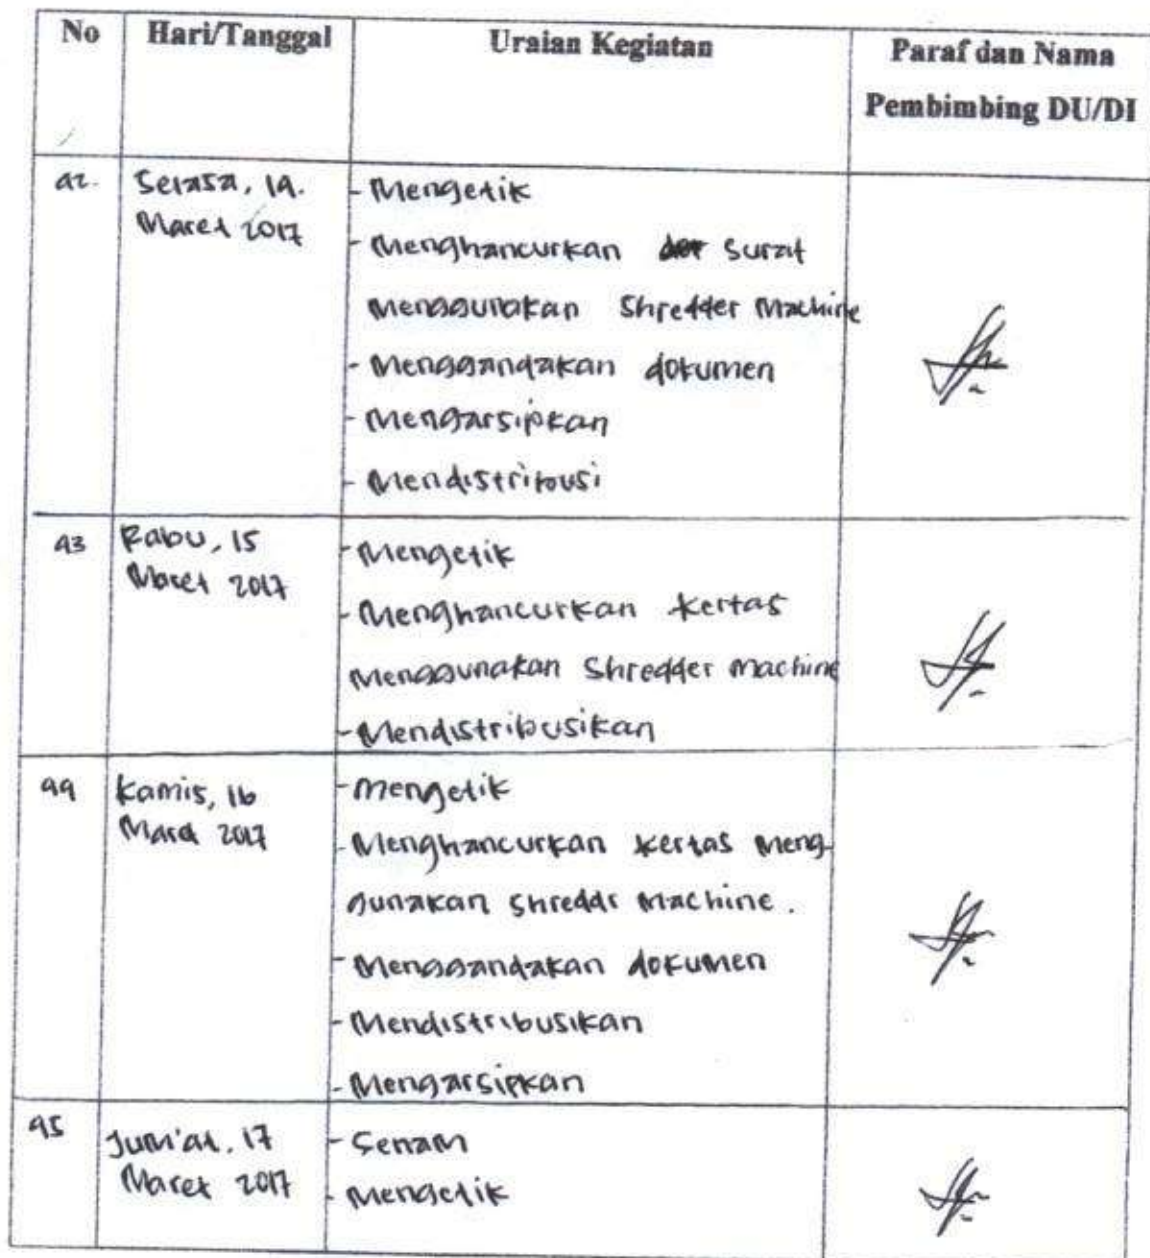 No Hari/Tanggal Uraian Kegiatan Paraf dan Nama
Pembimbing DU/DI
42. Selasa, 14.
Maret 2017
- Mengetik
- Menghancurkan surat
Menggunakan Shredder Machine
- Menggandakan dokumen
- Mengarsipkan
- Mendistribusi
43 Rabu, 15
Maret 2017
- Mengetik
- Menghancurkan kertas
Menggunakan Shredder Machine
- Mendistribusikan
44 Kamis, 16
Maret 2017
- Mengetik
- Menghancurkan kertas Meng-
gunakan Shreddr Machine.
- Menggandakan dokumen
- Mendistribusikan
- Mengarsipkan
45 Jum'at, 17
Maret 2017
- Senam
- Mengetik